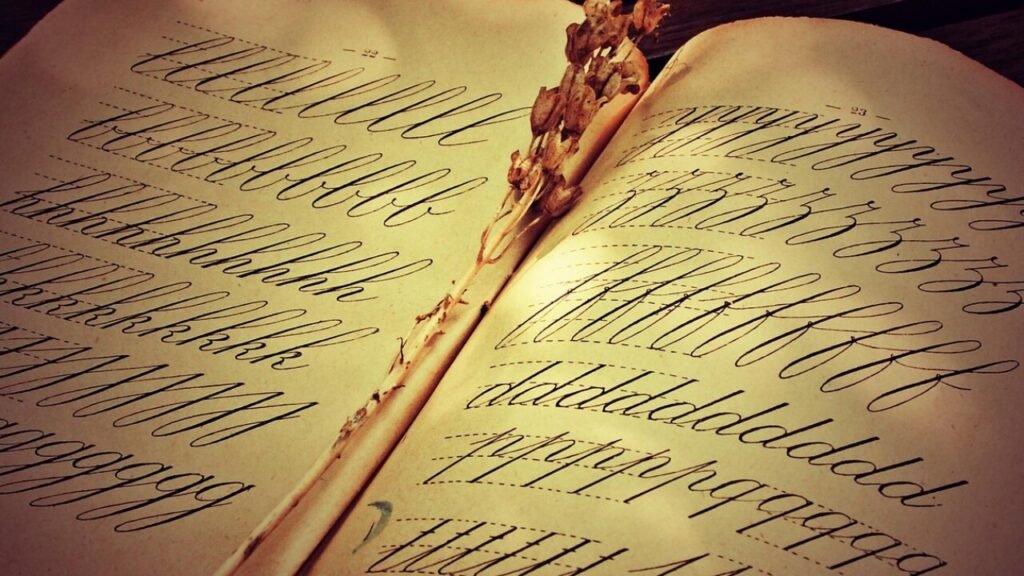 — 22 —
llllllllllll
bbbbbbbbbbb
hhhhhhhhhhhh
kkkkkkkkkkk
jjjjjjjj
ggggggggg
— 23 —
yyyyyyyyyyyy
zzzzzzzzzzz
ffffffffffff
dddddddddddddd
ppppppqqqqqq
ttttttt